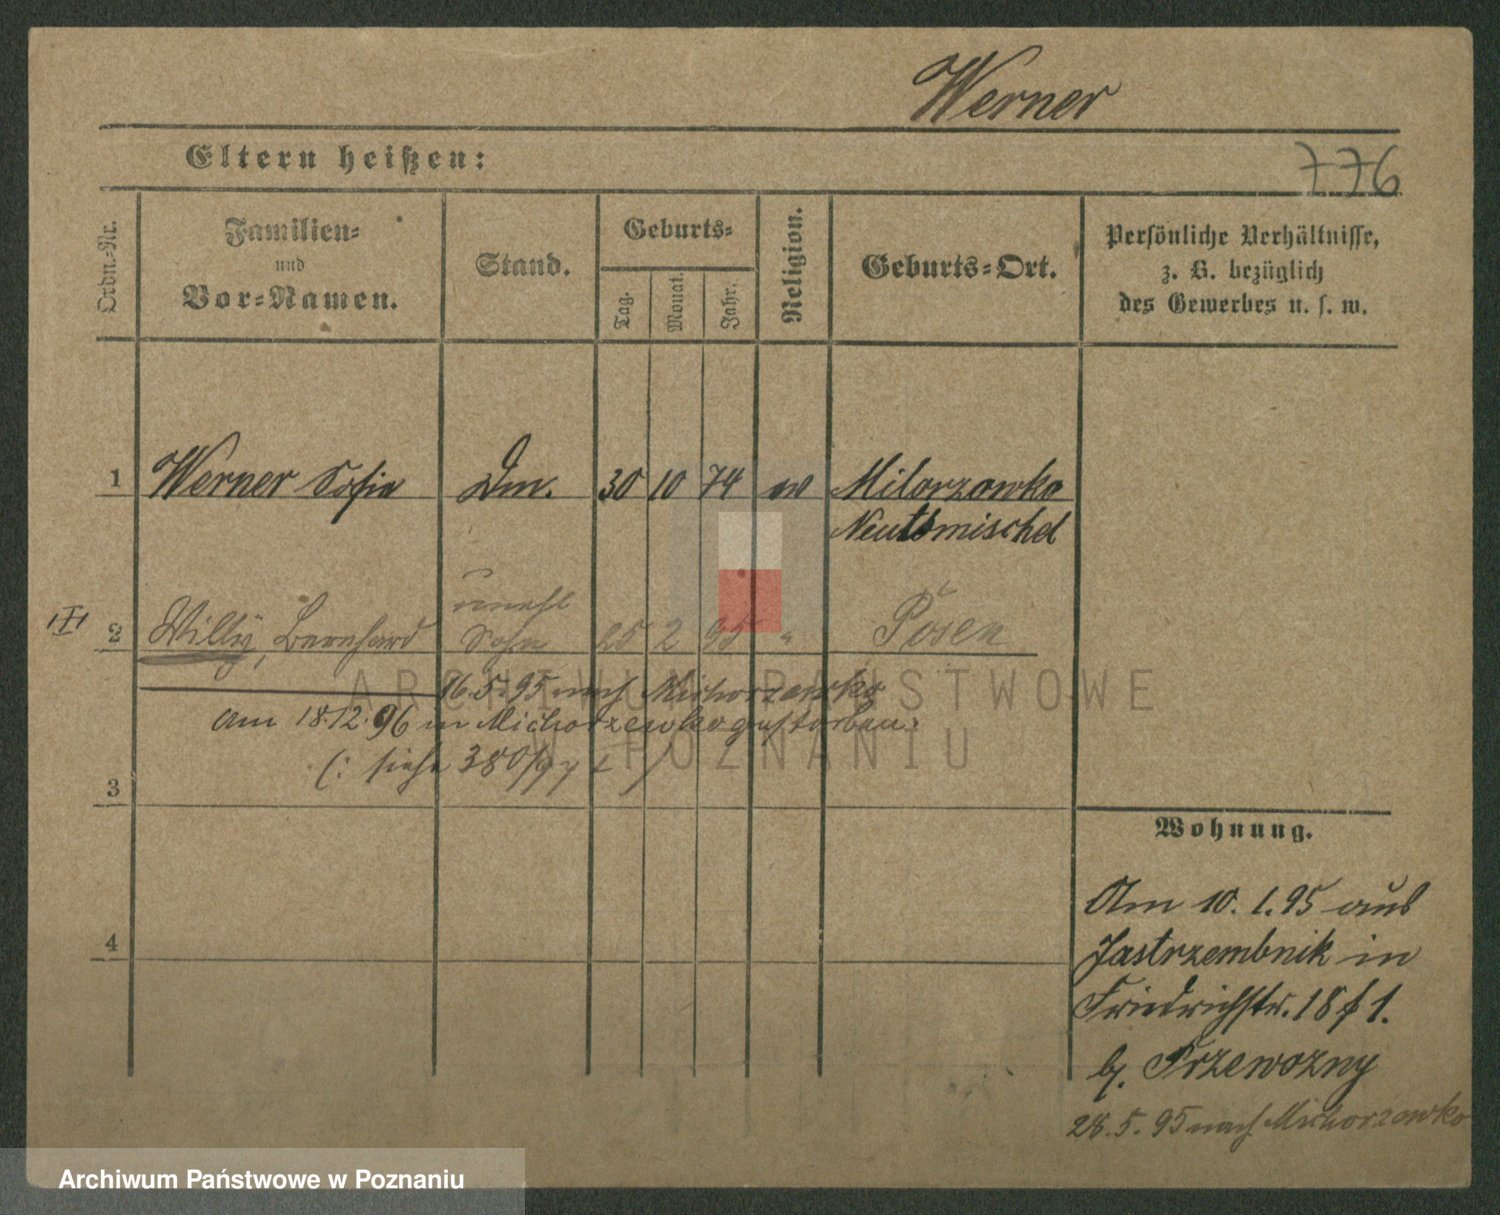 Werner
Eltern heißen:
776
Ordn.-Nr.
Familien-
und
Vor-Namen.
Stand.
Geburts-
Tag.
Monat.
Jahr.
Religion.
Geburts-Ort.
Persönliche Verhältnisse,
z. B. bezüglich
des Gewerbes u. s. w.
1 Werner Sofie Dm. 30 10 74 ev Milorzewko
Neutomischel
unehl
2 Willy, Bernhard Sohn 25 2 95 " Posen
16.5.95 nach Michorzewko
am 18 12. 96 in Michorzewko gestorben.
(: siehe 380/97
3
Wohnung.
4
Am 10. 1. 95 aus
Jastrzembnik in
Friedrichstr. 18 f 1.
b. Przewozny
28. 5. 95 nach Michorzewko
ARCHIWUM PAŃSTWOWE
W POZNANIU
Archiwum Państwowe w Poznaniu